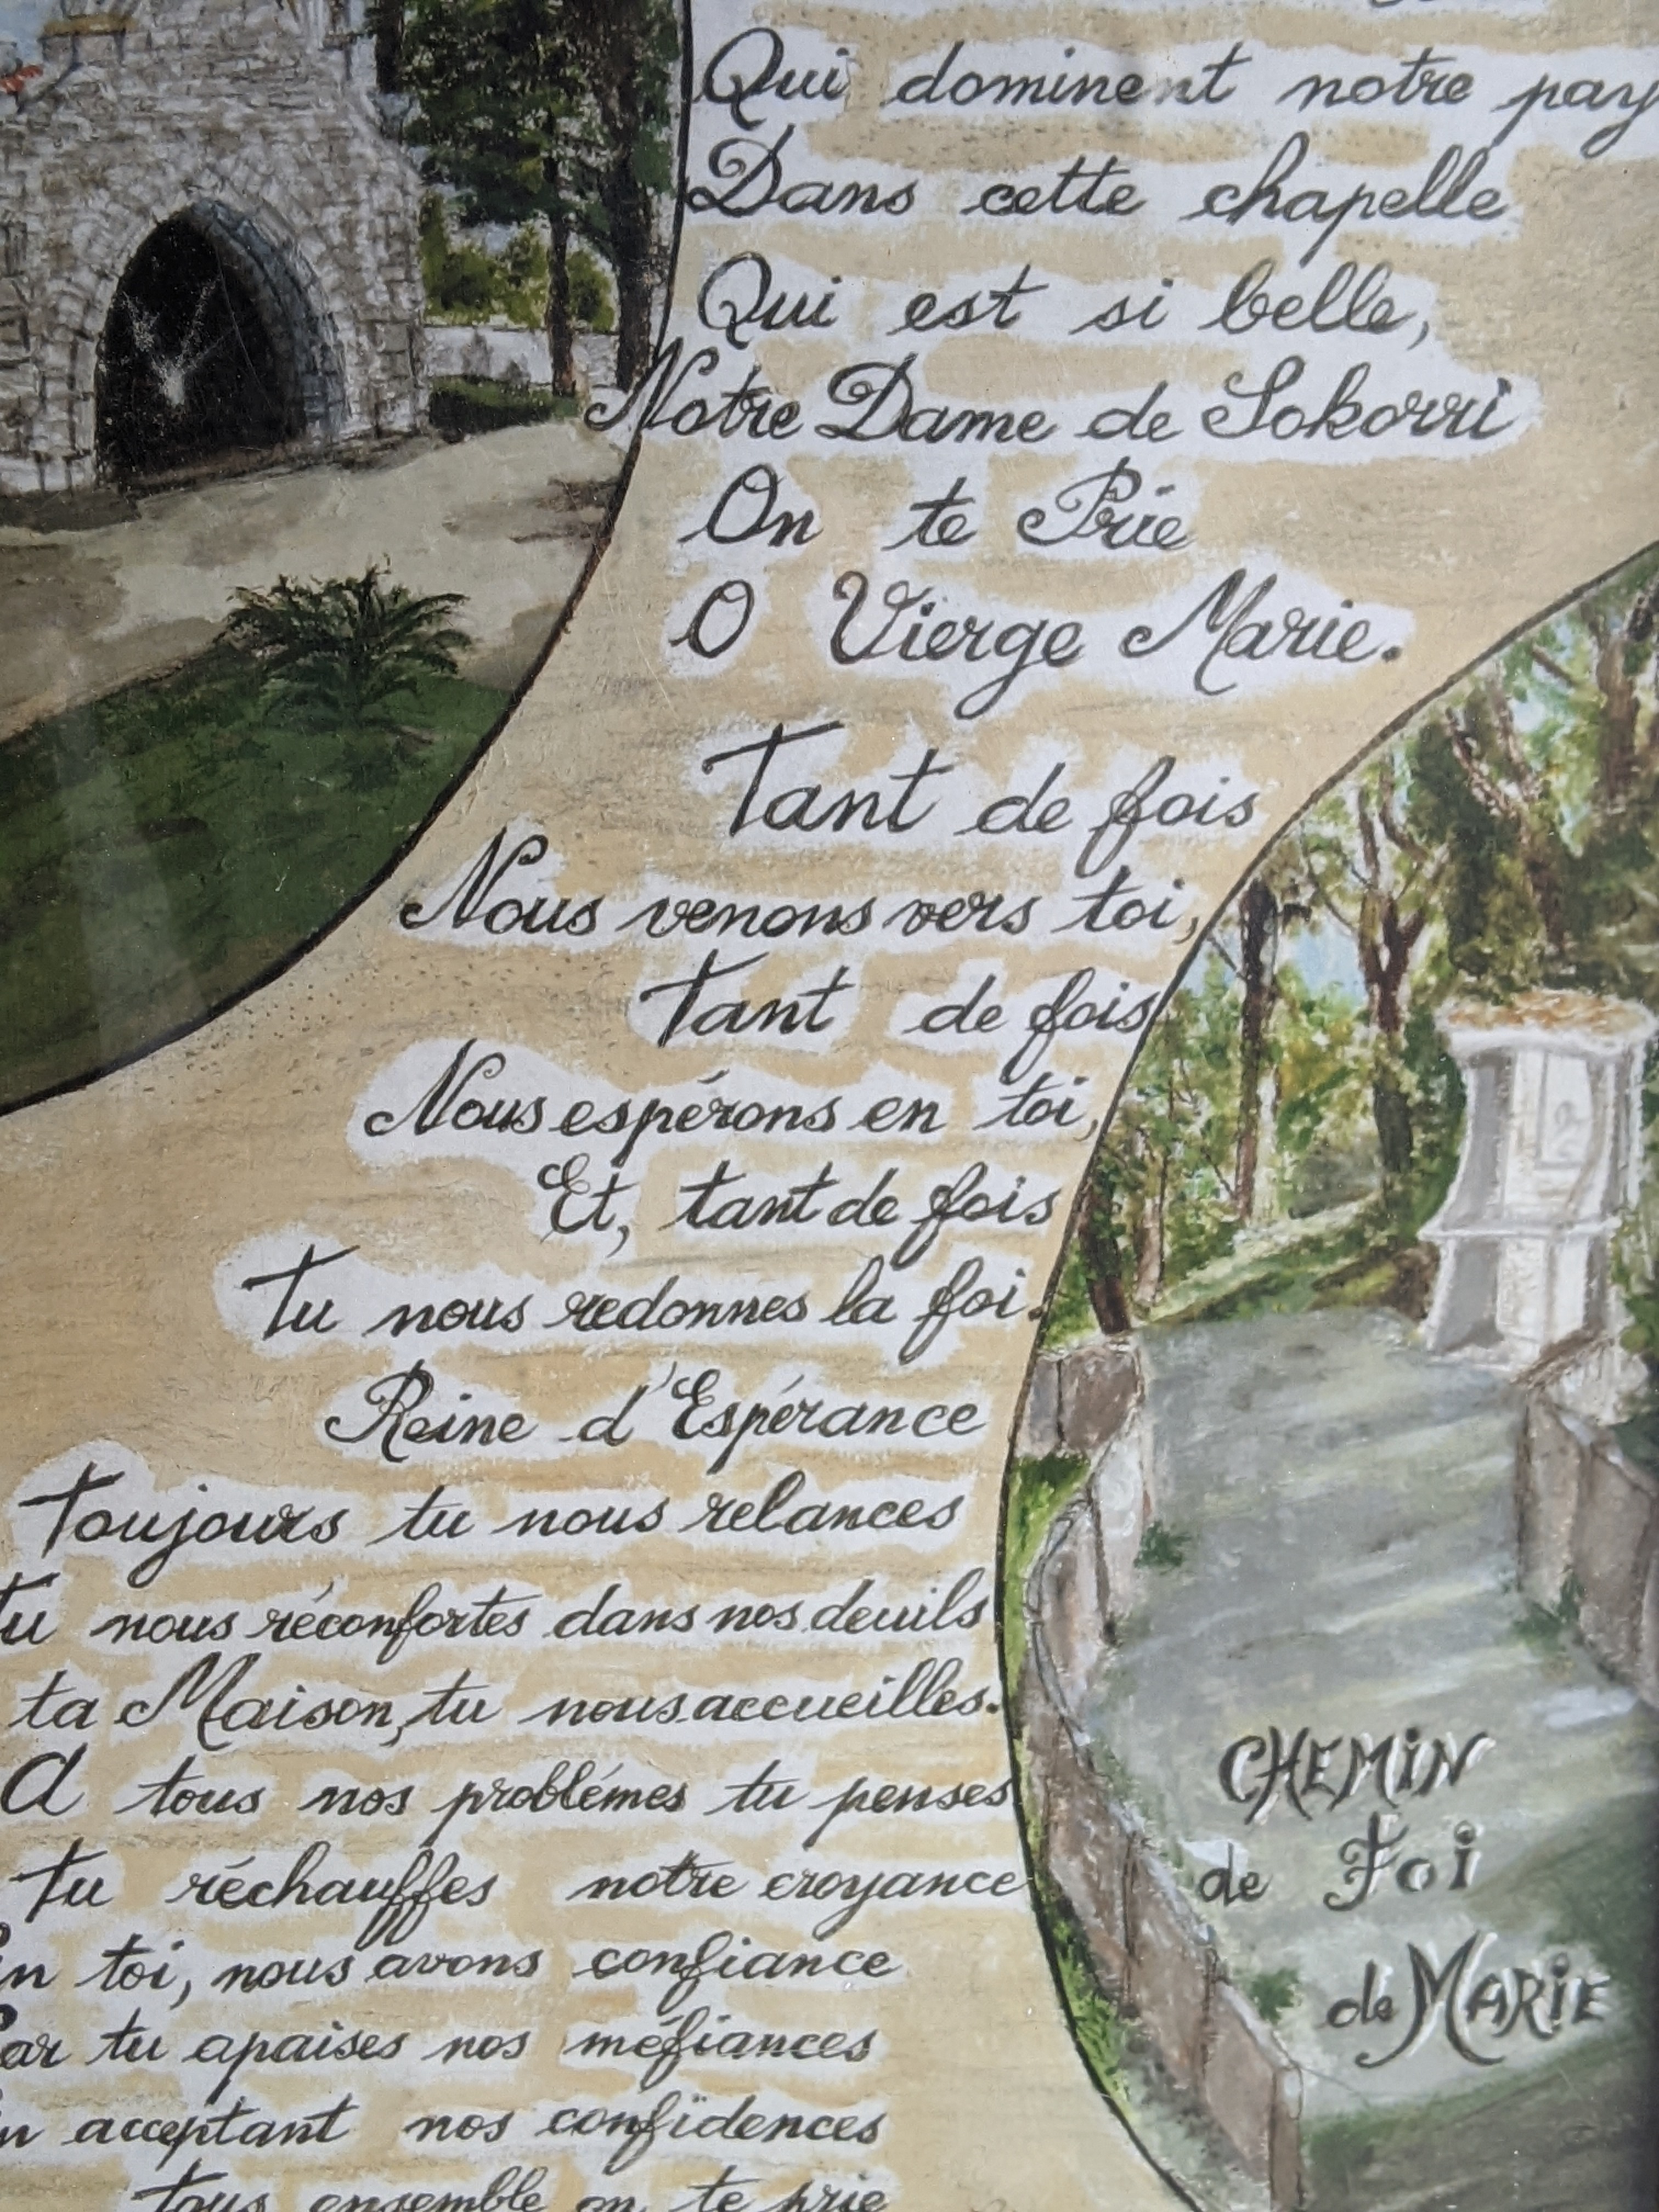 Qui dominent notre pay
Dans cette chapelle
Qui est si belle,
Notre Dame de Sokorri
On te Prie
O Vierge Marie.
Tant de fois
Nous venons vers toi,
Tant de fois
Nous espérons en toi,
Et, tant de fois
Tu nous redonnes la foi.
Reine d'Espérance
Toujours tu nous relances
Tu nous réconfortes dans nos deuils
ta Maison, tu nous accueilles.
A tous nos problémes tu penses
Tu réchauffes notre croyance
En toi, nous avons confiance
Car tu apaises nos méfiances
En acceptant nos confidences
Tous ensemble on te prie
CHEMiN
de Foi
de MARiE